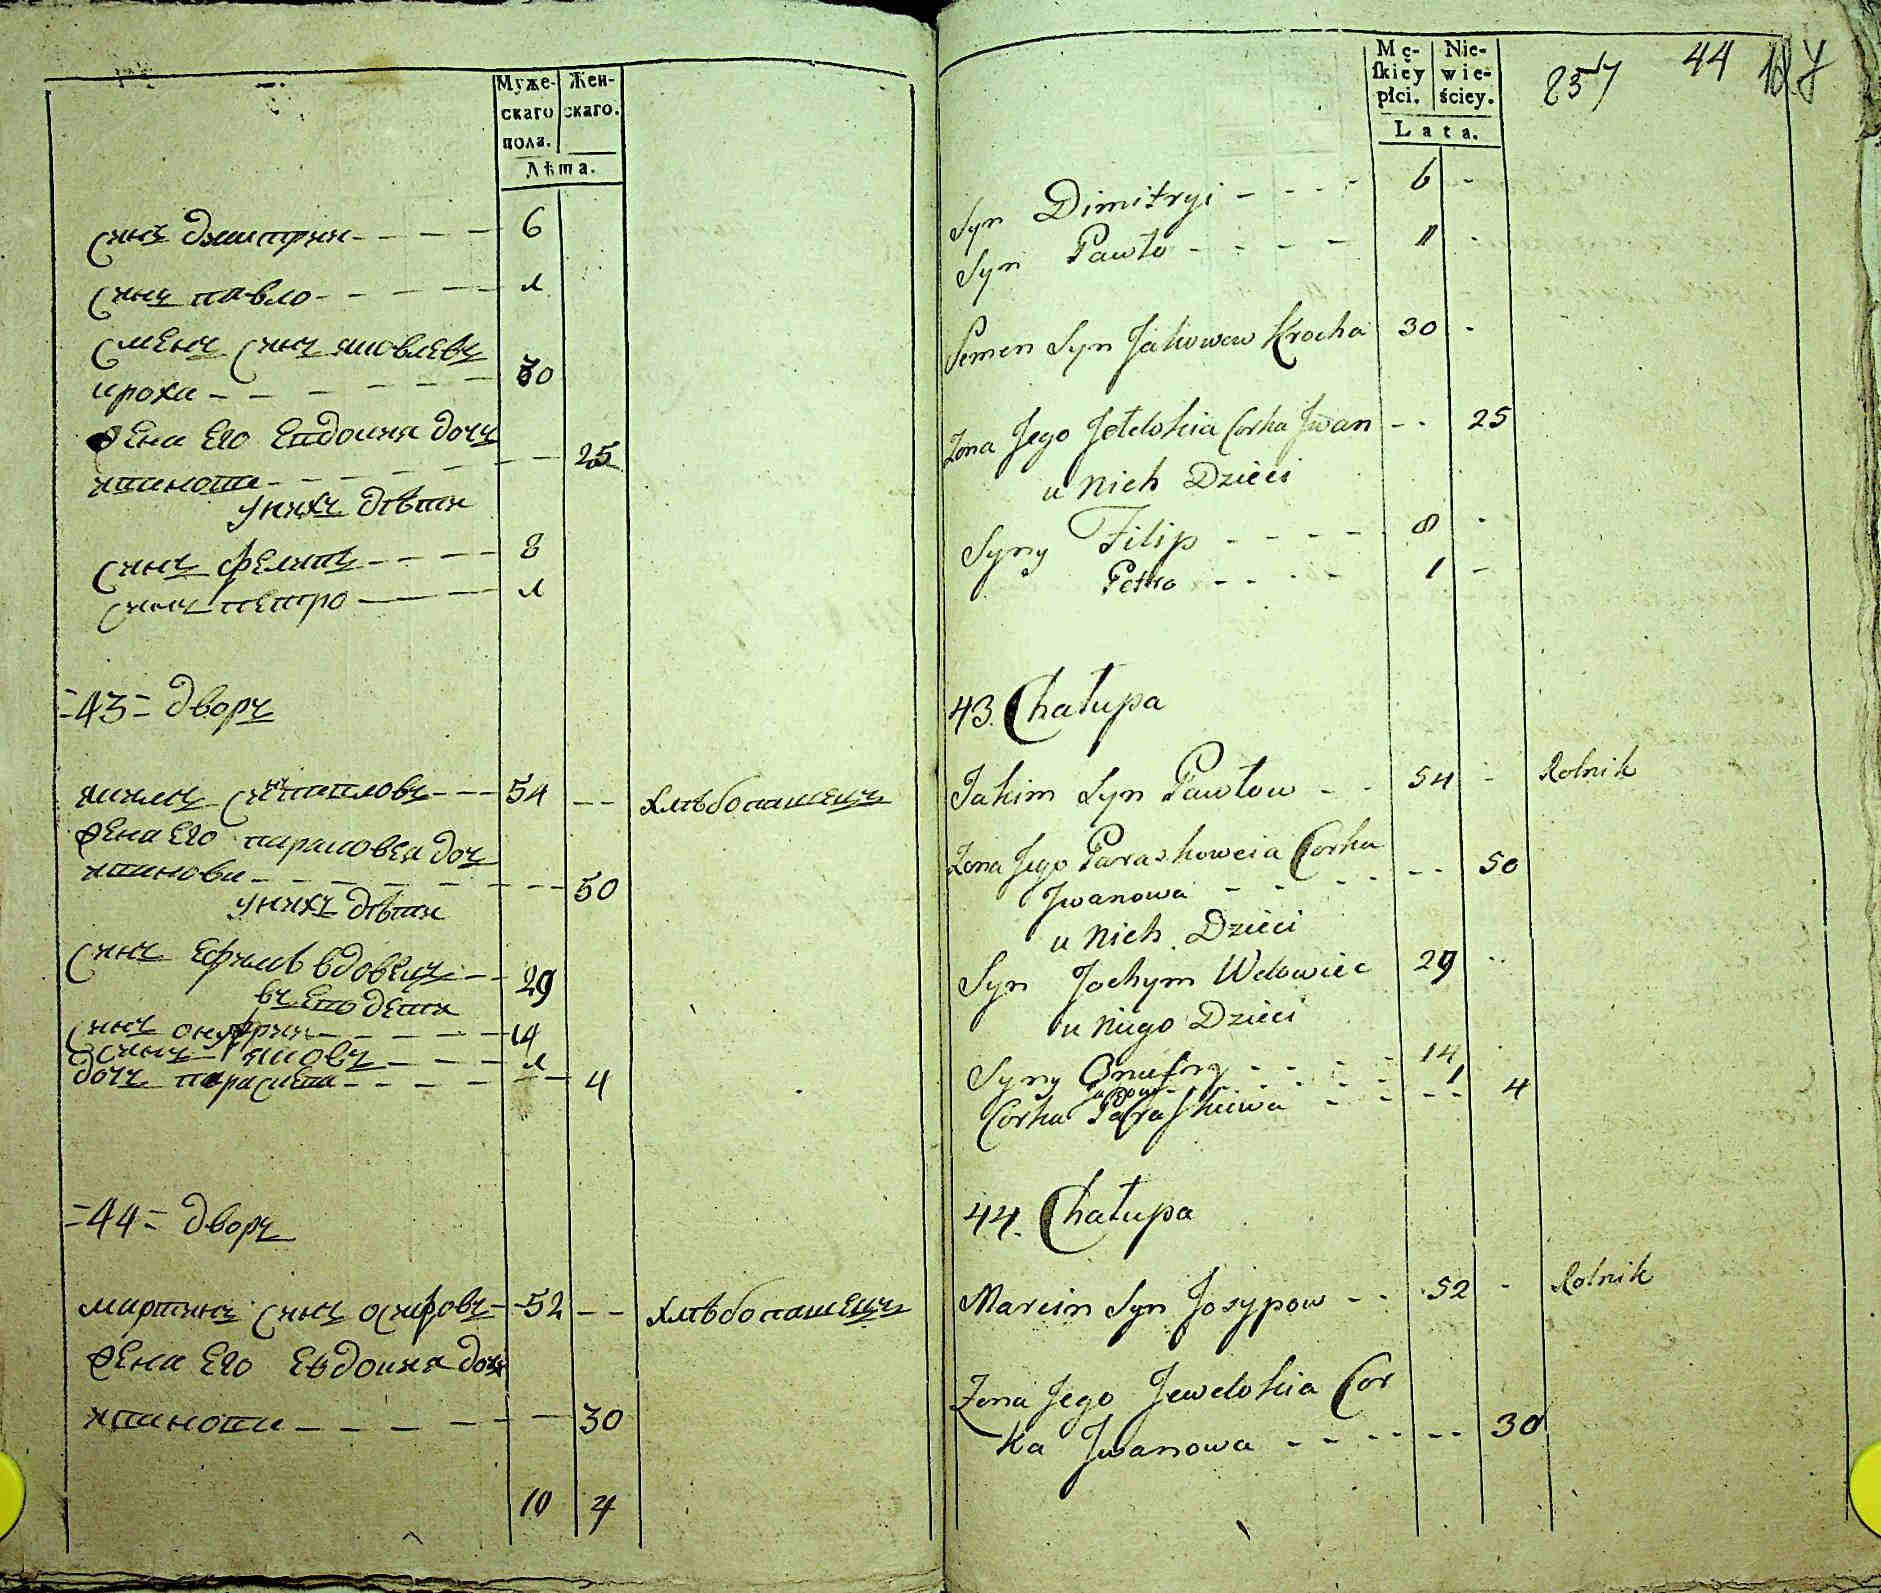 Муже-
скаго
пола.
Жен-
скаго.
Лѣта.
синъ дмитрии - - - - - 6
синъ павло - - - - - 1
семенъ синъ яковлевъ
кроха - - - - - 30
жена его евдокия дочъ
иванова - - - - - 25
у нихъ дѣти
синъ филипъ - - - - 8
синъ петро - - - 1
=43= дворъ
якимъ синъ павловъ - - - 54 - - хлѣбопашецъ
жена его парасковея дочъ
иванова - - - - - - - 50
у нихъ дѣти
синъ ефимъ вдовецъ - - 29
въ его дети
синъ онуфрии - - - - 14
синъ яковъ - - - - 1
дочъ параскева - - - - - 4
=44= дворъ
мартинъ синъ осиповъ - 52 - - хлѣбопашецъ
жена его евдокия дочъ
иванова - - - - - - 30
10 4
Mę-
ſkiey
płci.
Nie-
wie-
ściey.
Lata.
257 44
Syn Dimitryi - - - - 6 -
Syn Pawło - - - - 1 -
Semen Syn Jakowow Krocha 30 -
Żona Jego Jewdokia Corka Jwan - - 25
u nich Dzieci
Syny Filip - - - - 8 -
Petro - - - - 1 -
43. Chałupa
Jakim Syn Pawłow - - 54 - Rolnik
Żona Jego Paraskoweia Corka
Jwanowa - - - - - - 50
u nich Dzieci
Syn Jochym Wdowiec 29 -
u niego Dzieci
Syny Onufry - - - - 14
Jakow - - - - - 1
Corka Paraſkiewa - - - - 4
44. Chałupa
Marcin Syn Josypow - - 52 - Rolnik
Żona Jego Jewdokia Cor
ka Jwanowa - - - - - - 30